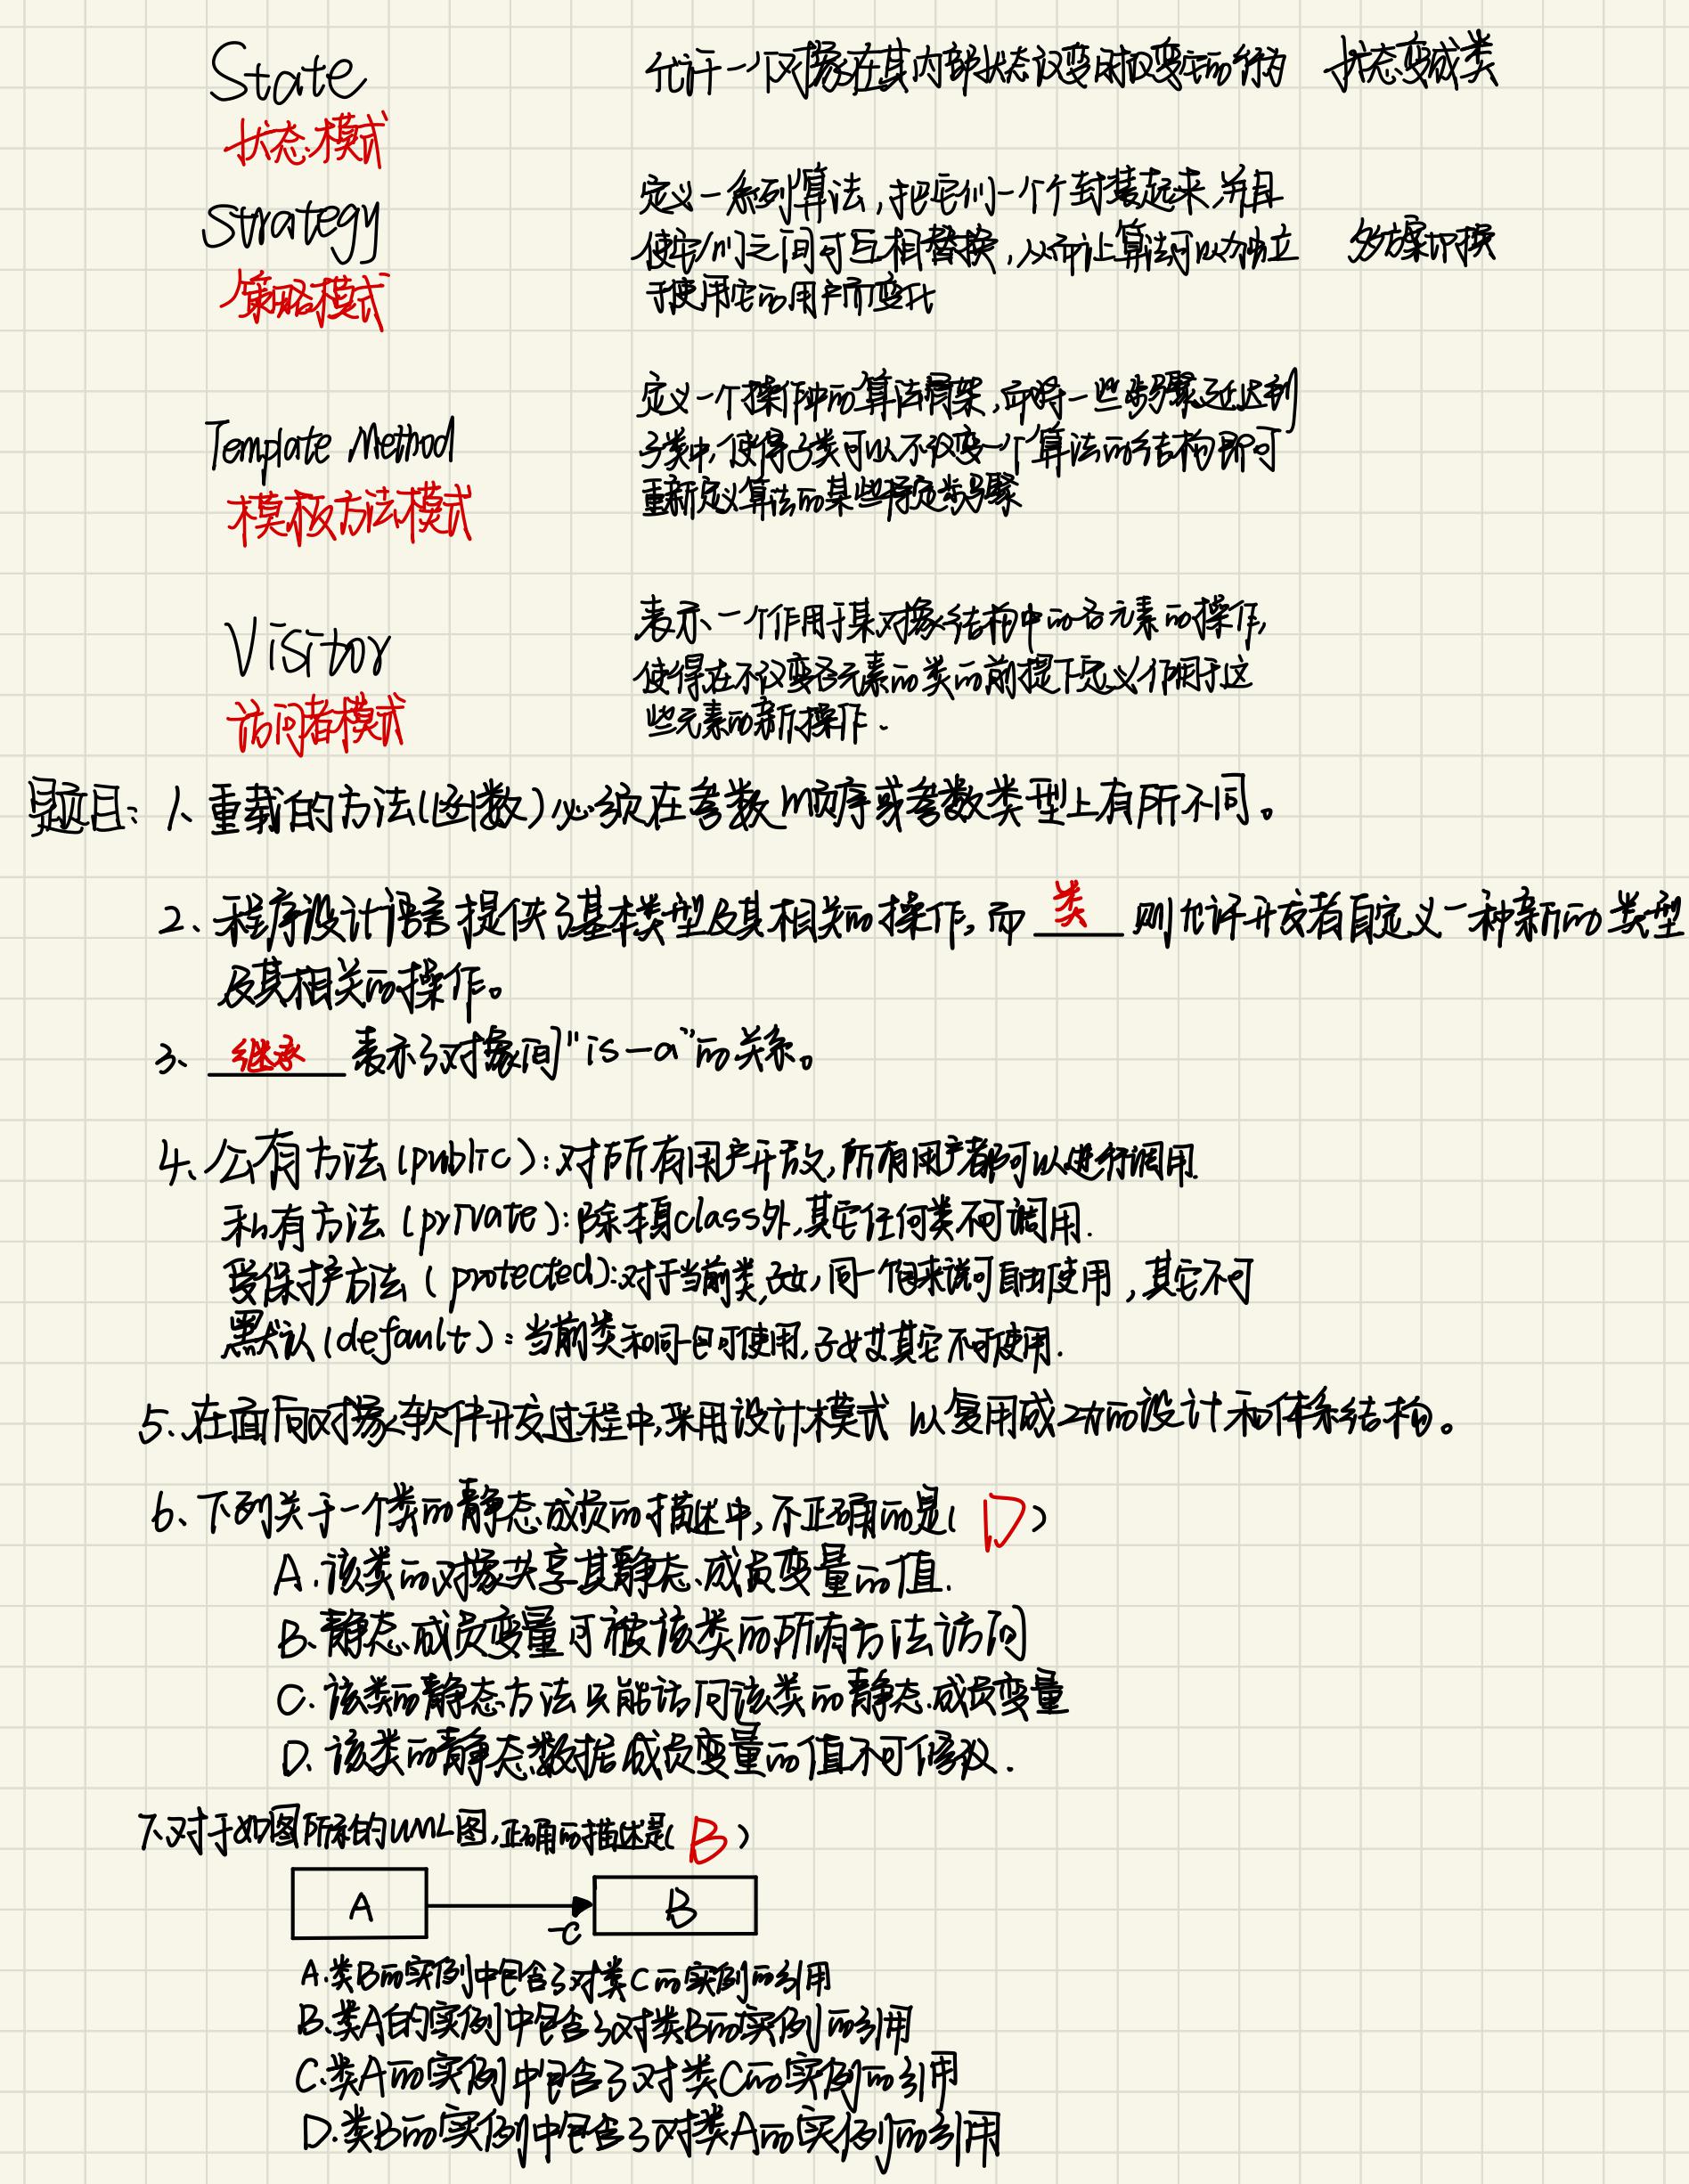 State
允许一个对象在其内部状态改变时改变它的行为 状态变成类
状态模式
Strategy
定义一系列算法,把它们一个个封装起来,并且
使它们之间可互相替换,从而让算法可以独立 多方案切换
于使用它的用户而变化
策略模式
Template Method
定义一个操作中的算法骨架,而将一些步骤延迟到
子类中,使得子类可以不改变一个算法的结构即可
重新定义算法的某些特定步骤
模板方法模式
Visitor
表示一个作用于某对象结构中的各元素的操作,
使得在不改变各元素的类的前提下定义作用于这
些元素的新操作.
访问者模式
题目: 1、重载的方法(函数)必须在参数顺序或参数类型上有所不同。
2、程序设计语言提供了基本类型及其相关的操作,而 类 则允许开发者自定义一种新的类型
及其相关的操作。
3、 继承 表示了对象间"is-a"的关系。
4、公有方法(public):对所有用户开放,所有用户都可以进行调用.
私有方法(private):除本身class外,其它任何类不可调用.
受保护方法(protected):对于当前类,子女,同一包来说可自由使用,其它不可
默认(default):当前类和同一包可使用,子女及其它不可使用.
5、在面向对象软件开发过程中,采用设计模式 以复用成功的设计和体系结构。
6、下列关于一个类的静态成员的描述中,不正确的是( D )
A.该类的对象共享其静态成员变量的值.
B.静态成员变量可被该类的所有方法访问
C.该类的静态方法只能访问该类的静态成员变量
D.该类的静态数据成员变量的值不可修改.
7.对于如图所示的UML图,正确的描述是( B )
A
B
-c
A.类B的实例中包含了对类C的实例的引用
B.类A的实例中包含了对类B的实例的引用
C.类A的实例中包含了对类C的实例的引用
D.类B的实例中包含了对类A的实例的引用